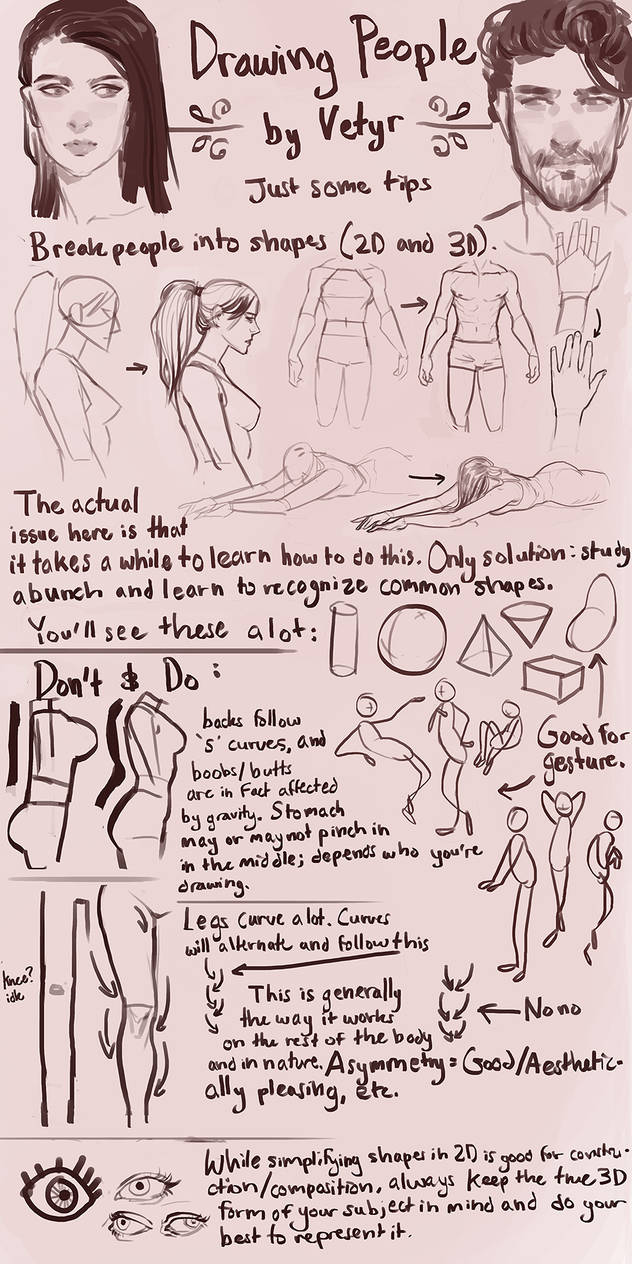 Drawing People
by Vetyr
Just some tips
Break people into shapes (2D and 3D).
The actual
issue here is that
it takes a while to learn how to do this. Only solution: study
a bunch and learn to recognize common shapes.
You'll see these a lot:
Don't & Do:
backs follow
's' curves, and
boobs/butts
are in fact affected
by gravity. Stomach
may or may not pinch in
in the middle; depends who you're
drawing.
Good for
gesture.
Legs curve a lot. Curves
will alternate and follow this
knee?
idk
This is generally
the way it works
on the rest of the body
and in nature. Asymmetry = Good/Aesthetic-
ally pleasing, etc.
No no
While simplifying shapes in 2D is good for constru-
ction/composition, always keep the true 3D
form of your subject in mind and do your
best to represent it.